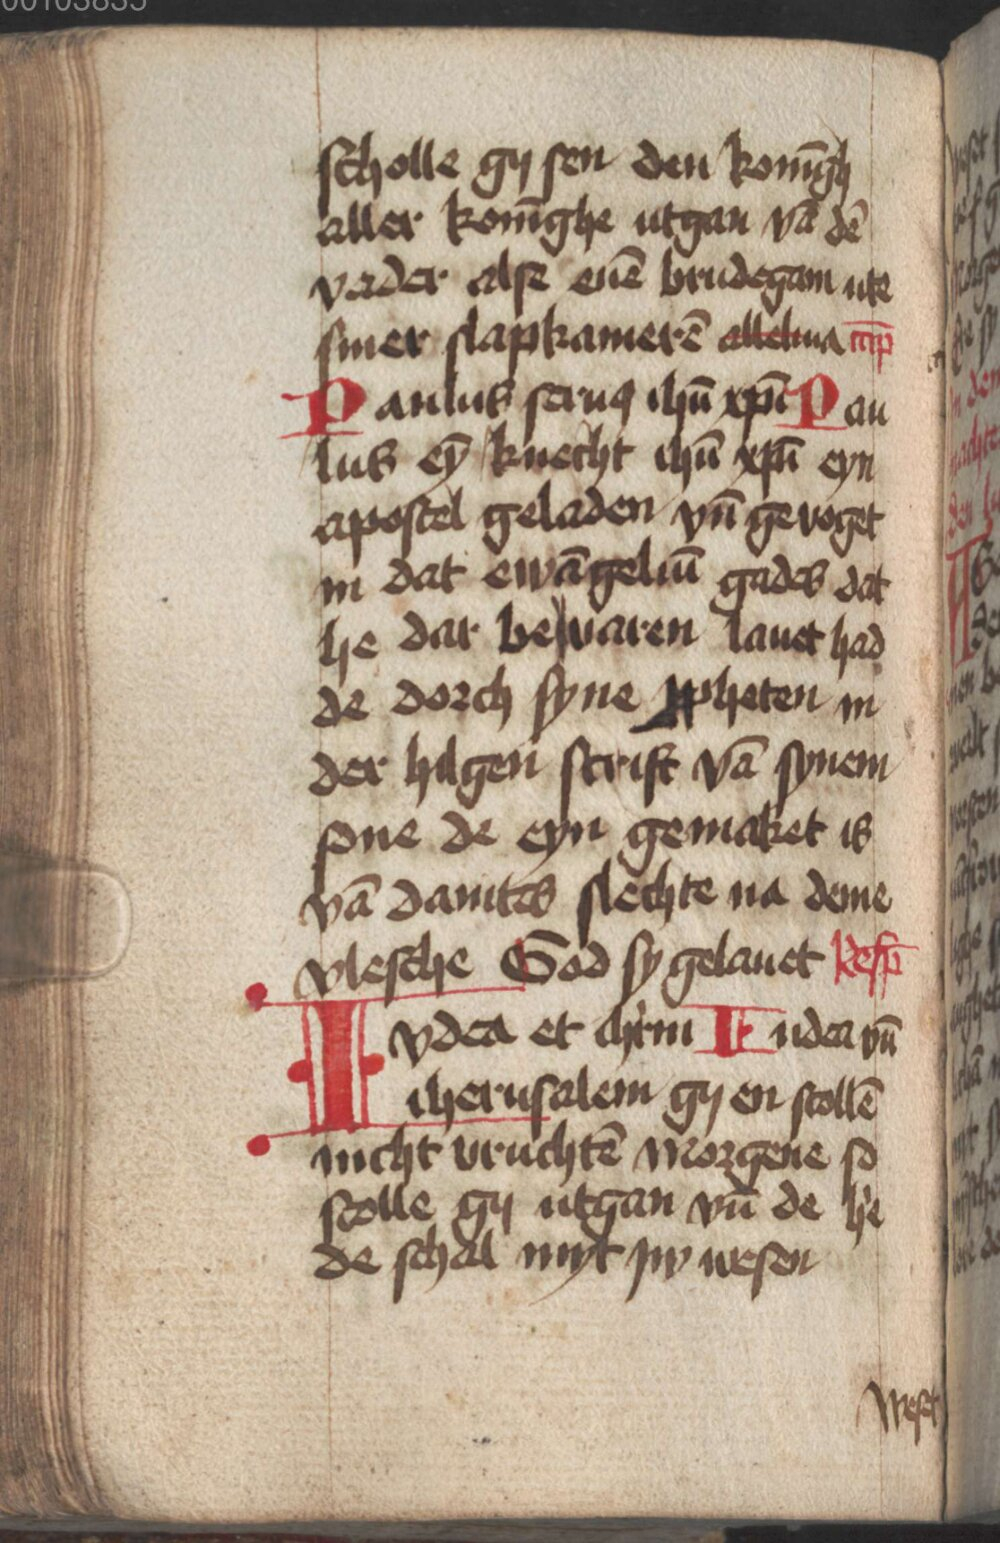 00103835
scholle gij sen den konīgh
aller konīghe utgan vā dē
vader alse enē brudegam ute
siner slapkamerē alleluia
Paulus seruꝯ ihū xpī Pau
lus eȳ knecht ihū xpī eyn
apostel geladen vn̄ gevoget
in dat ewāgeliū gades dat
he dar bewaren lauet had
de dorch syne ꝓpheten in
der hilgen scrift vā synem
sone de eyn gemaket is
vā dauites slechte na deme
vlesche God sy gelauet Resp̄
Iudea et ihrlm Iudea vn̄
iherusalem gij en scollē
nicht vruchtē Morgene so
scolle gij utgan vn̄ de he
de schal myt iw wesen
Weset